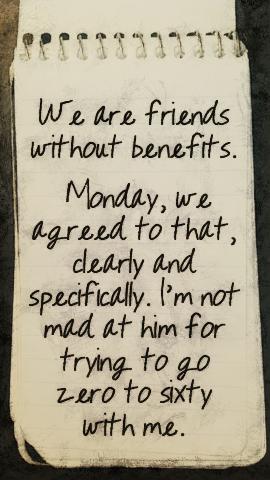 We are friends
without benefits.
Monday, we
agreed to that,
clearly and
specifically. I'm not
mad at him for
trying to go
zero to sixty
with me.